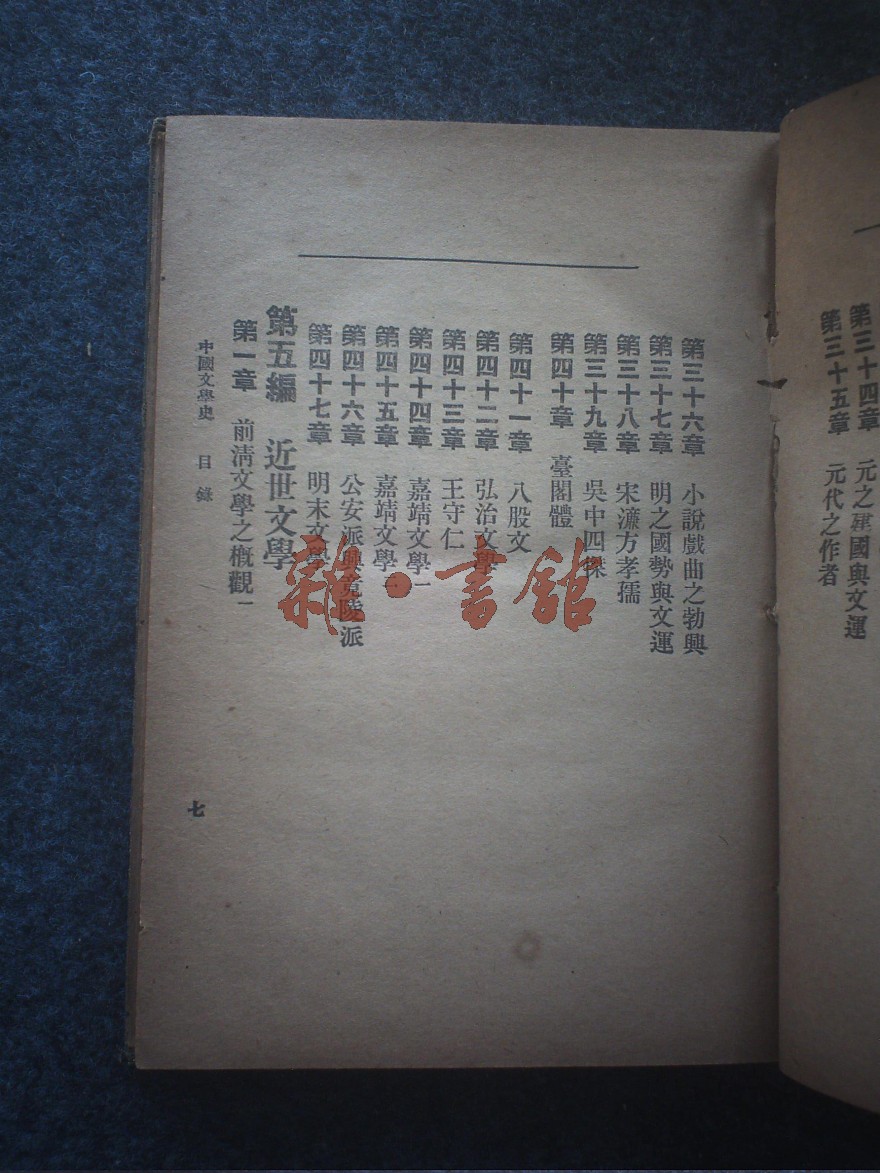 第三十四章 元之建國與文運
第三十五章 元代之作者
第三十六章 小說戲曲之勃興
第三十七章 明之國勢與文運
第三十八章 宋濂方孝孺
第三十九章 吳中四傑
第四十章 臺閣體
第四十一章 八股文
第四十二章 弘治文學
第四十三章 王守仁
第四十四章 嘉靖文學一
第四十五章 嘉靖文學二
第四十六章 公安派與竟陵派
第四十七章 明末文學
第五編 近世文學
第一章 前淸文學之槪觀一
中國文學史 目錄
七
雜·書館